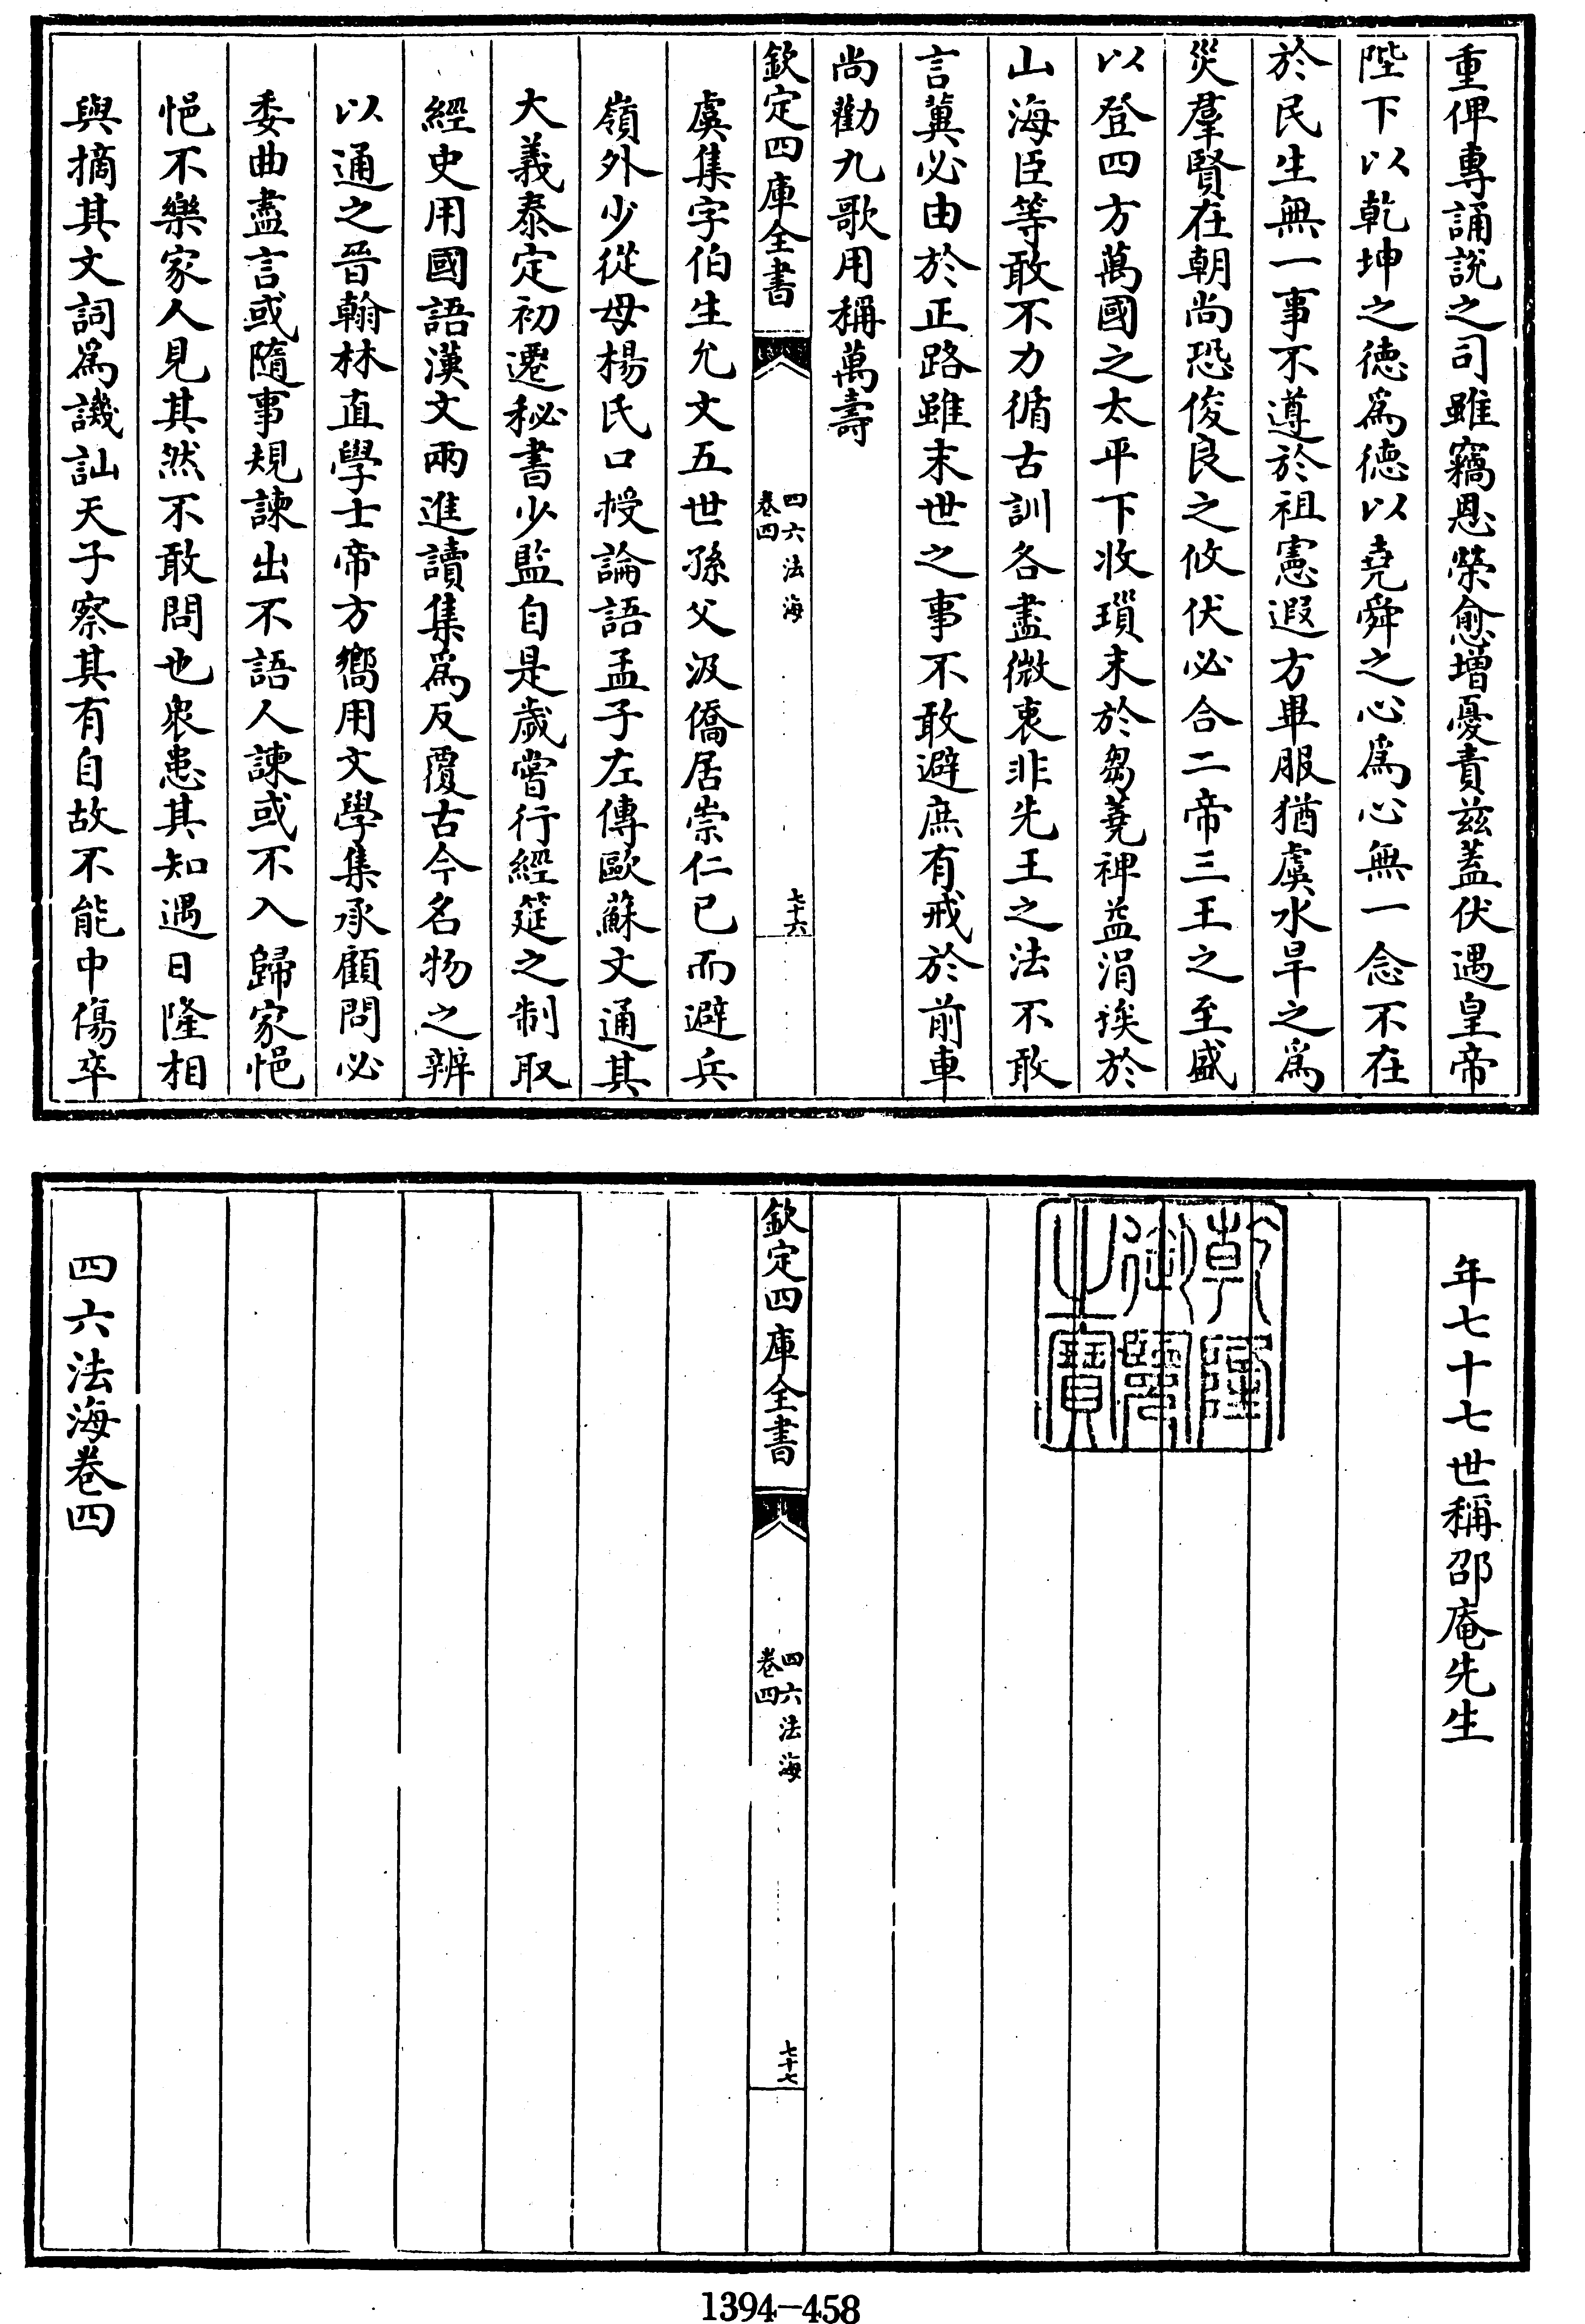 重俾專誦説之司雖竊恩榮愈增憂責兹蓋伏遇皇帝
陛下以乾坤之徳為徳以堯舜之心為心無一念不在
於民生無一事不遵於祖憲遐方畢服猶虞水旱之為
災羣賢在朝尚恐俊良之攸伏必合二帝三王之至盛
以登四方萬國之太平下收瑣末於芻蕘禆益涓埃於
山海臣等敢不力循古訓各盡微衷非先王之法不敢
言冀必由於正路雖末世之事不敢避庶有戒於前車
尚勸九歌用稱萬壽
欽定四庫全書
四六法海
卷四
七十六
虞集字伯生允文五世孫父汲僑居崇仁已而避兵
嶺外少從母楊氏口授論語孟子左傳歐蘇文通其
大義泰定初遷秘書少監自是歲嘗行經筵之制取
經史用國語漢文兩進讀集為反覆古今名物之辨
以通之晉翰林直學士帝方嚮用文學集承顧問必
委曲盡言或隨事規諫出不語人諫或不入歸家悒
悒不樂家人見其然不敢問也衆患其知遇日隆相
與摘其文詞為譏訕天子察其有自故不能中傷卒
年七十七世稱邵庵先生
乾隆御覽之寶
欽定四庫全書
四六法海
卷四
七十七
四六法海卷四
1394-458